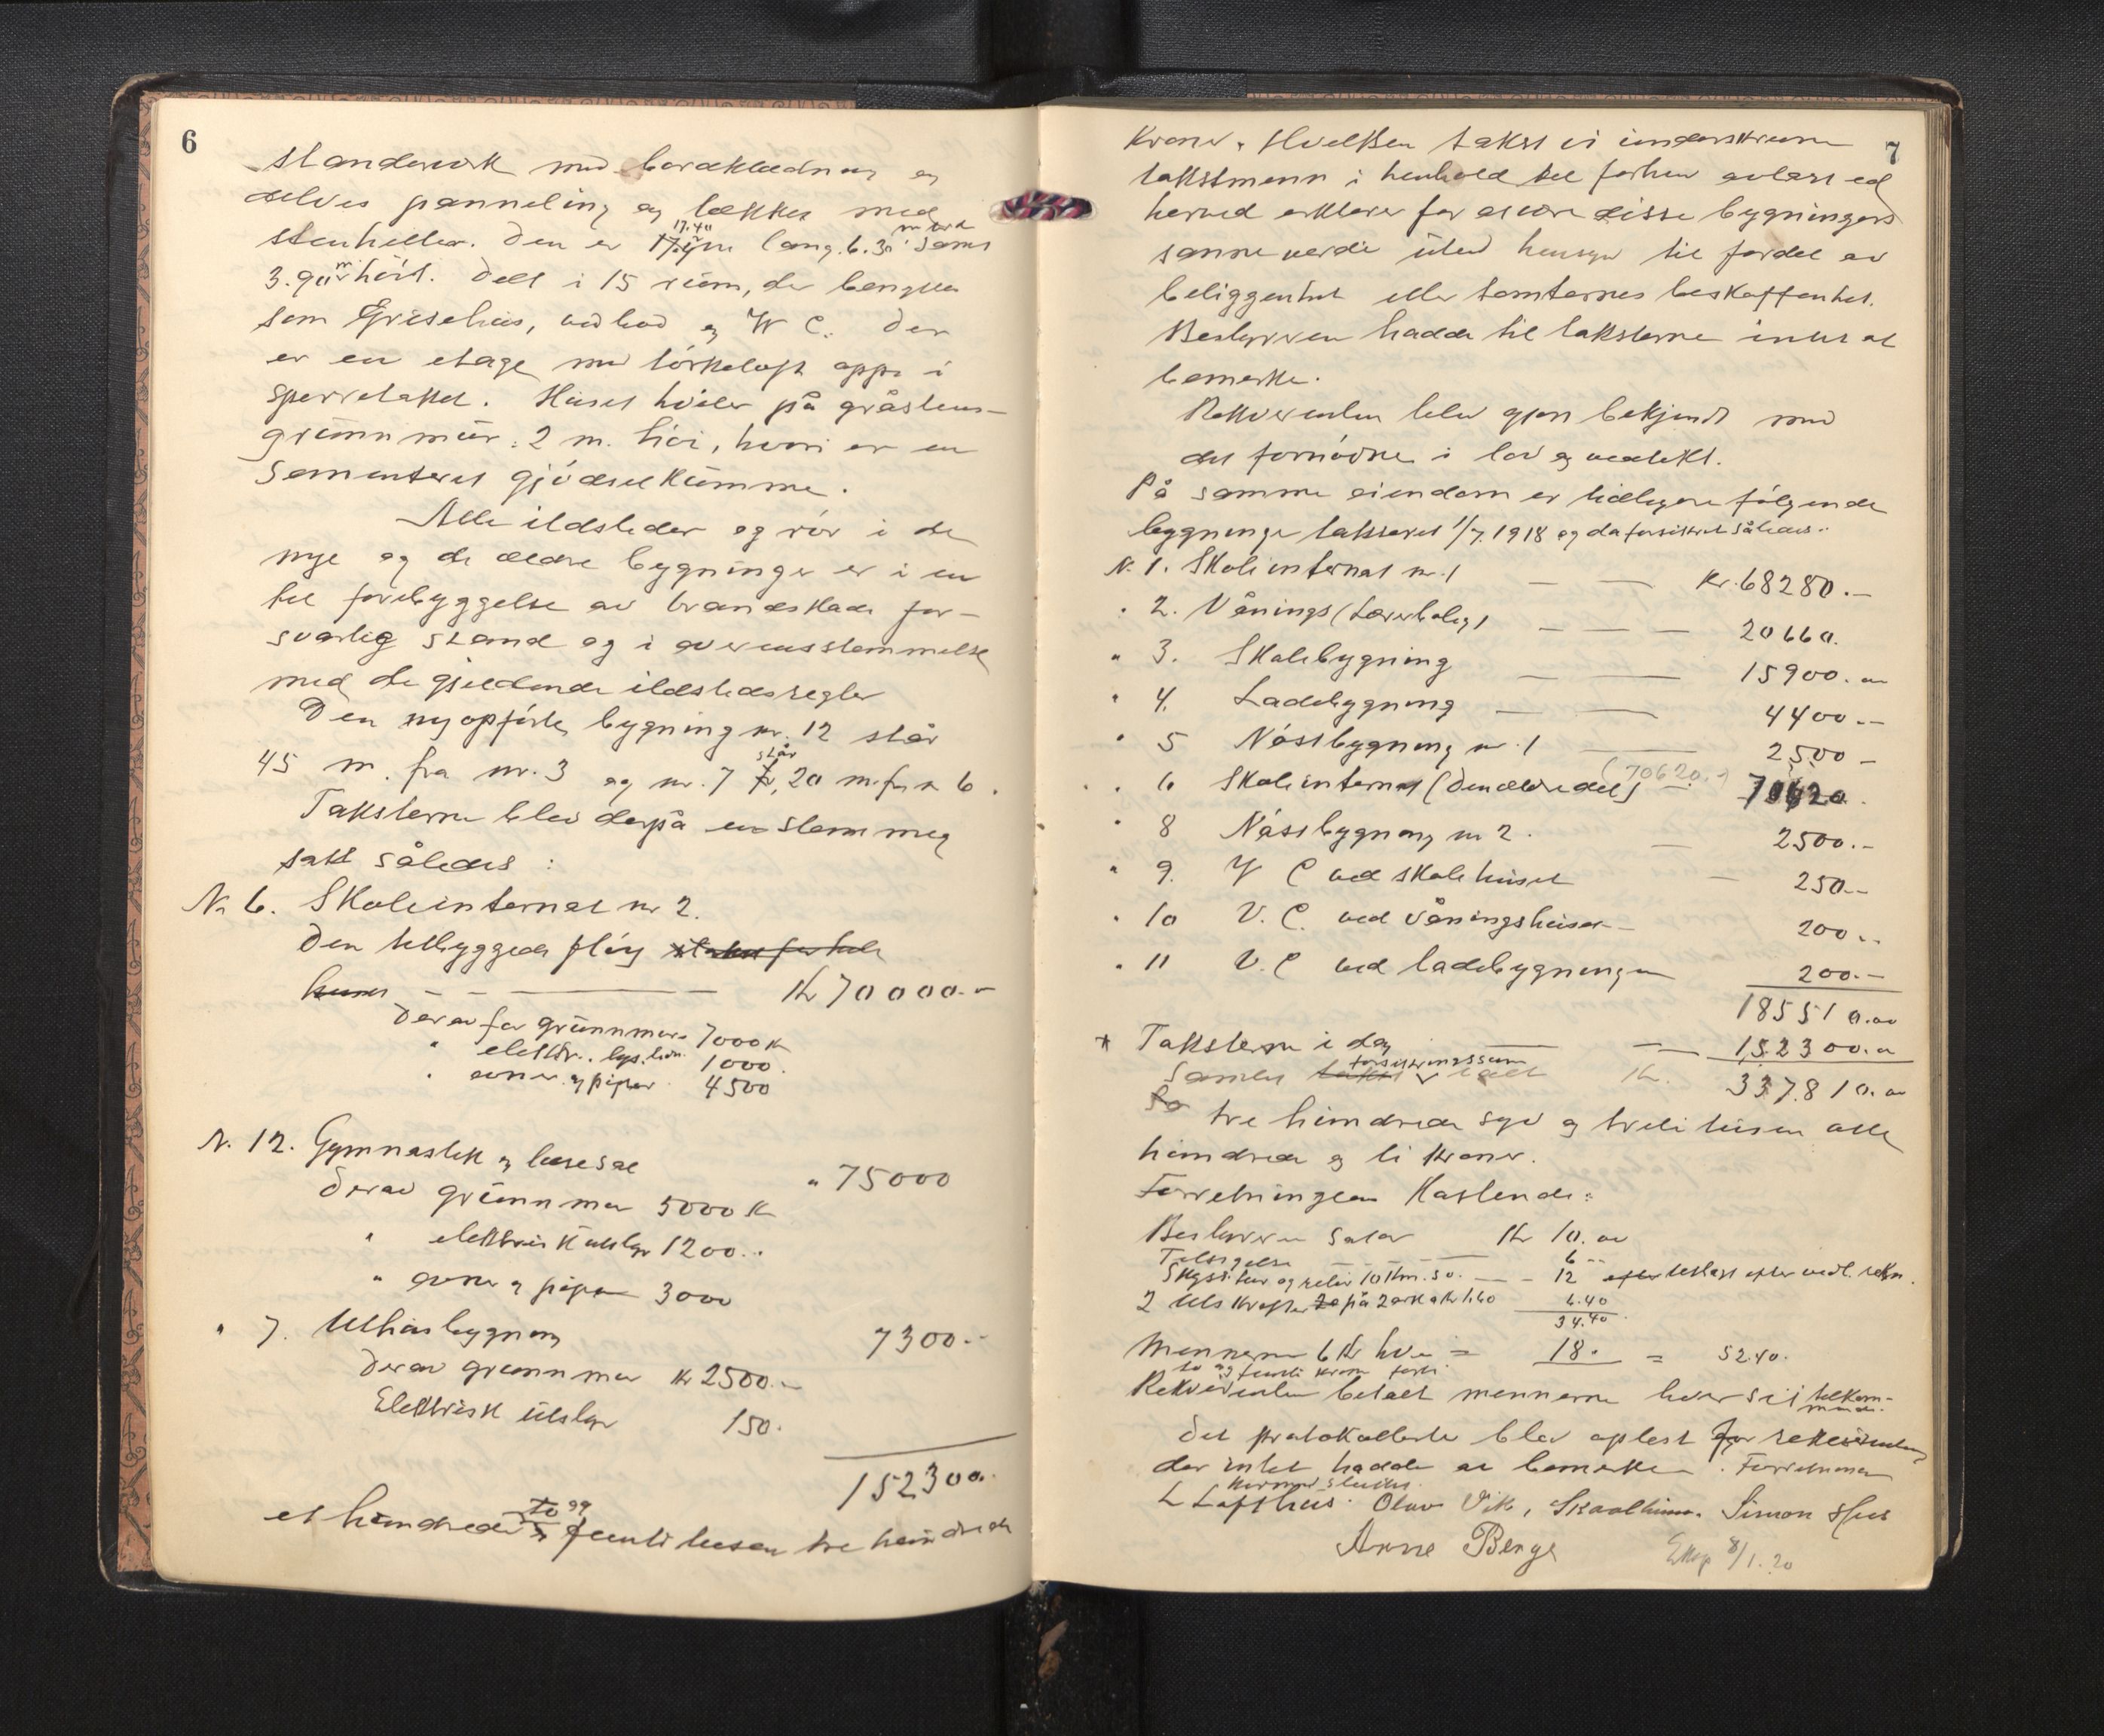 6
standerverk med bordklædning og
delvis panneling og tækket med
17.40 m bred
stenheller. Den er lang. 6.30 samt
3.90 m høit. Delt i 15 rum, der benyttes
som Grisehus, vedbod og W C. Der
er en etage med tørkeloft oppe i
sperretaket. Huset hviler på gråstens-
grunnmur: 2 m. høi, hvori er en
sementeret gjødselkumme.
Alle ildsteder og rør i de
nye og de ældre bygninger er i en
til forebyggelse av brandskade for-
svarlig stand og i overensstemmelse
med de gjældende ildstedsregler
Den nyopførte bygning nr. 12 står
står
45 m. fra nr. 3 og nr. 7 20 m. fra n 6.
Taksterne blev derpå enstemmig
satt således:
N. 6. Skoleinternat nr 2.
Den tilbyggede fløy
huset — — Kr 70000.-
Derav for grunnmur 7000 Kr
" elektr. lys. ledn. 1000.
" ovner og piper 4500
N. 12. Gymnastik og læsesal
" 75000
Derav grunnmur 5000 Kr
" elektrisk utstyr 1200..
" ovner og piper 3000
" 7. Uthusbygning 7300.-
Derav grunnmur Kr 2500.-
Elektrisk utstyr 150.
152300.
to og
et hundrede femti tusen tre hundrede
7
Kroner. Hvilken takst vi underskrevne
takstmenn i henhold til forhen avlagt ed
herved erklærer for at være disse bygningers
sanne verdi uten hensyn til fordel av
beliggenhet eller tomternes beskaffenhet.
Bestyreren hadde til taksterne intet at
bemerke.
Rekvirenten blev gjort bekjendt med
det fornødne i lov og vedtekt.
På samme eiendom er tidligere følgende
bygninger taksseret 1/7. 1918 og da forsikret således:
N. 1. Skoleinternat nr. 1 — — Kr. 68280.-
" 2. Vånings (Lærerbolig) — — — 20660.
" 3. Skolebygning — — 15900.
" 4. Ladebygning — — 4400.-
" 5 Nøstbygning nr. 1 — 2500 -
(70620.-)
" 6 Skoleinternat (den ældre del) 70620.
" 8 Nøstbygning nr 2. — 2500.-
" 9. W C ved skolehuset — 250.-
" 10 V. C. ved Våningshuset - 200..
" 11 V. C ved ladebygningen 200.-
185510.00
* Taksterne i dag — — 152300.
forsikringssum
Samlet takst i alt Kr. 337.810.
tre hundrede syv og treti tusen otte
hundrede og ti Kroner.
Forretningens Kostende:
Bestyreren Salær Kr 10.00
Tilsigelse — — — 6 --
Skyss tur og retur 10 Km. — - 12 efter vedl. rekn.
2 Utskrifter på 2 ark a Kr 1.60 6.40
34.40
Mennene 6 Kr hver = 18. = 52.40.
to og femti kroner førti
Rekvirenten betalt mennerne hver sit tilkom-
mende.
Det protokollerte blev oplest for rekvirenten
der intet hadde at bemerke. Forretningen
hermed sluttet.
L Lofthus. Olav Vik, Skaalheim. Simon Hus
Arne Berge Eksp 8/1. 20